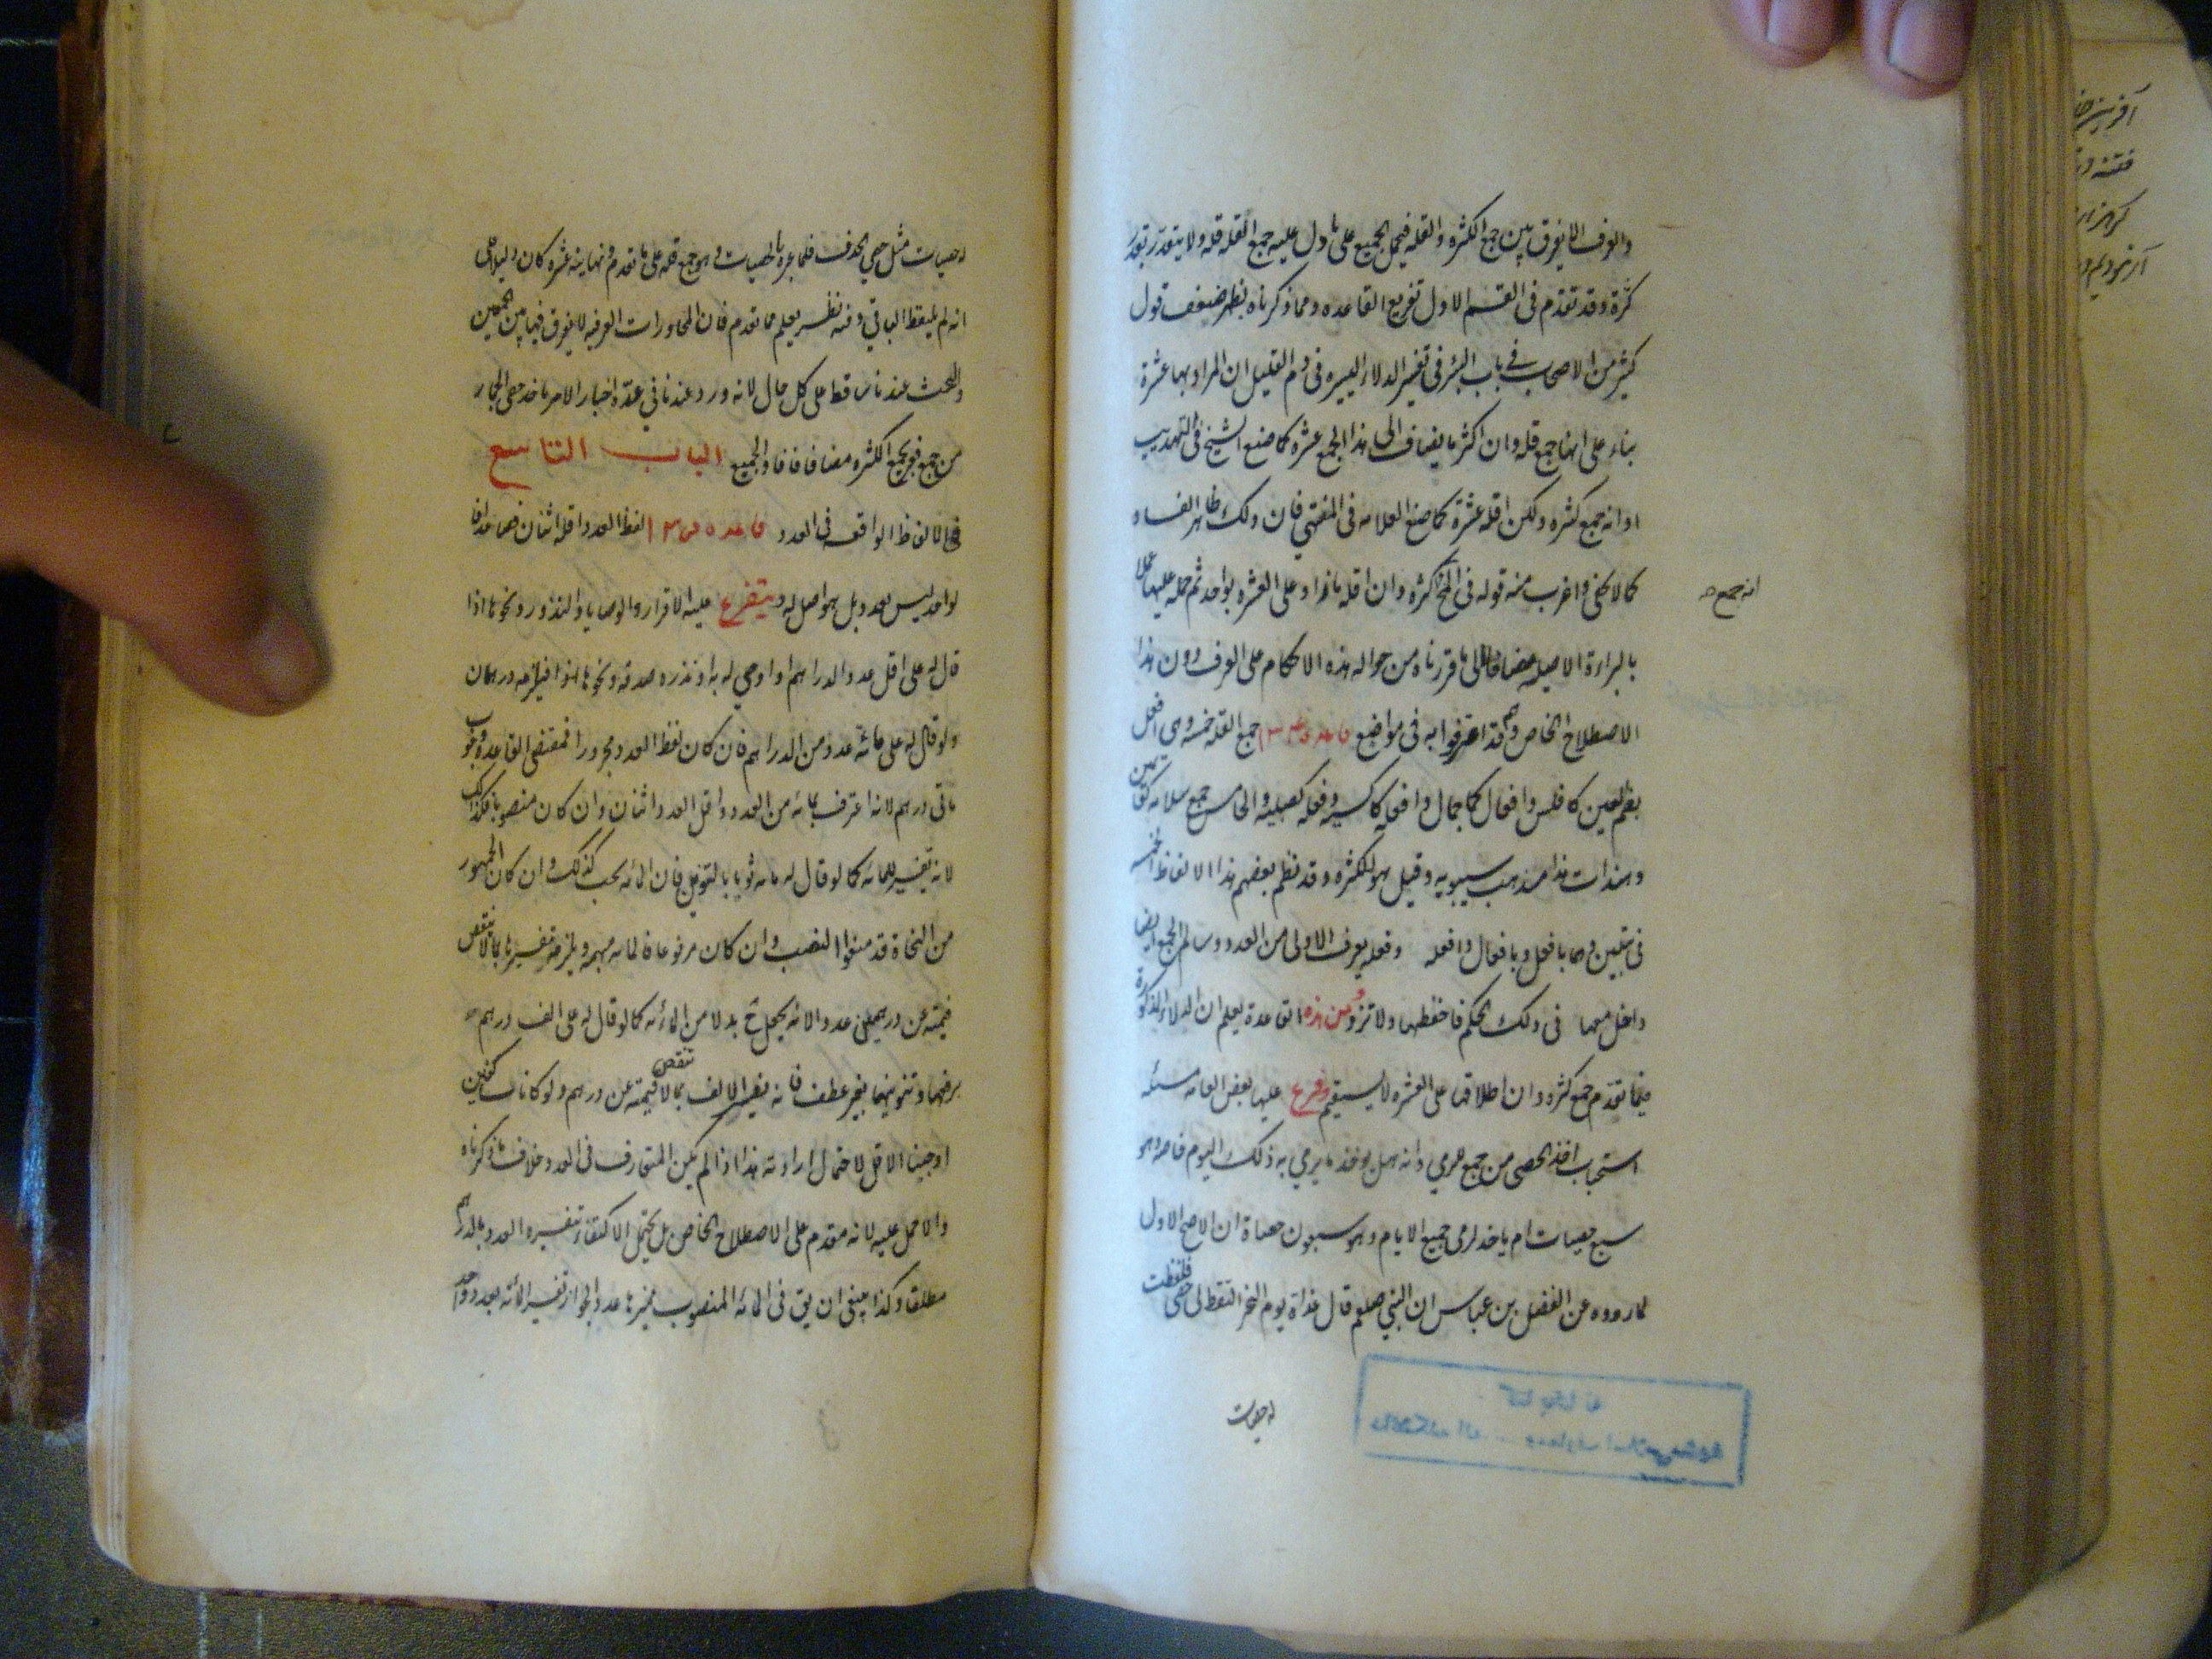 والعرف لا يفرق بين جمع الكثره والقله فيحمل الجميع على ما دل عليه جمع القله قله ولا يتعدد بتعدد
كثرة وقد تقدم فى القسم الاول تفريع القاعده ومما ذكرناه يظهر ضعف قول
كثير من الاصحاب فى باب البئر فى تفسير الدلاء اليسيره فى دم القليل ان المراد بها عشرة
بناء على انها جمع قله وان اكثر ما يضاف الى هذا الجمع عشره كما صنع الشيخ فى التهذيب
او انه جمع كثره ولكن اقله عشرة كما صنع العلامه فى المنتهى فان ذلك ظاهر الفساد
كما لا يخفى واغرب منه قوله فى المخ كثره وان اقله ما زاد على العشره بواحد ثم حمله عليها عملا
انه جمع صح
بالبراءة الاصليه مضافا الى ما قررناه من حواله هذه الاحكام على العرف دون هذا
الاصطلاح الخاص وهم قد اعترفوا به فى مواضع قاعده جمع القله خمسه وهى افعل
بضم العين كافلس وافعال كاجمال وافعله كاكسيه وفعله كصبيه والخامس جمع سلامه كمسلمين
وهندات هذا مذهب سيبويه وقيل هو للكثره وقد نظم بعضهم هذا الالفاظ الخمسه
فى بيتين وهما بافعل وبافعال وافعله وفعله يعرف الادنى من العدد وسالم الجمع ايضا
داخل معها فى ذلك الحكم فاحفظها ولا تزد ومن هذه القاعدة يعلم ان الدلاء المذكورة
فيما تقدم جمع كثره وان اطلاقها على العشره لا يستقيم وفرع عليها بعض العامه مسئله
استحباب اخذ الحصى من جمع للرمي وانه هل يوخذ ما يرمي به ذلك اليوم خاصه وهو
سبع حصيات ام ياخذ لرمى جميع الايام وهو سبعون حصاة ان الاصح الاول
لما رووه عن الفضل بن عباس ان النبي صلعم قال غداة يوم النحر التقط لى حصى فلقطت
له حصيات
له حصيات مثل حصى الخذف فلما عبره بالحصيات وهو جمع قله على ما تقدم ونهايته عشره كان دليلا على
انه لم يلتقط الباقي وفيه نظر يعلم مما تقدم فان المحاورات العرفيه لا يفرق فيها بين الجمعين
والبحث عندنا ساقط على كل حال لانه ورد عندنا في عدة اخبار الامر باخذ حصى الجمار
من جمع فجمع بجمع الكثره مضافا فافاد الجميع الباب التاسع
فى الالفاظ الواقعه فى العدد قاعده لفظ العدد اقله اثنان فصاعدا فا
لواحد ليس بعدد بل هو اصل له ويتفرع عليه الاقرار والوصايا والنذور ونحوها اذا
قال له على اقل عدد الدراهم او اوصى له به او نذره صدقه ونحوها فيلزمه درهمان
ولو قال له على مائة عدد من الدراهم فان كان لفظ العدد مجرورا فمقتضى القاعده وجوب
مأتى درهم لانه اعترف بمائه من العدد واقل العدد اثنان وان كان منصوبا فكذلك
لانه تفسير للمائه كما لو قال له مائه ثوبا بالتنوين فان المائه يجب كذلك وان كان الجمهور
من النحاة قد منعوا النصب وان كان مرفوعا فالمائه مبهمه ويلزمه تفسيرها بما لا ينقص
قيمته عن درهمين عددا لانه يجعل ح بدلا من المائه كما لو قال له على الف درهم
برفعهما وتنوينهما بغير عطف فانه يفسر الالف بما لا تنقص قيمته عن درهم ولو كانا ساكنين
اوجبنا الاقل لاحتمال ارادته هذا اذا لم يكن المتعارف فى العدد خلاف ما ذكرناه
والا حمل عليه لانه مقدم على الاصطلاح الخاص بل يحتمل الاكتفاء بتفسيره العدد بالدرهم
مطلقا وكذا ينبغى ان يق فى المائه المنصوب مميزها عددا لجواز تفسير المائه بعدد واحد